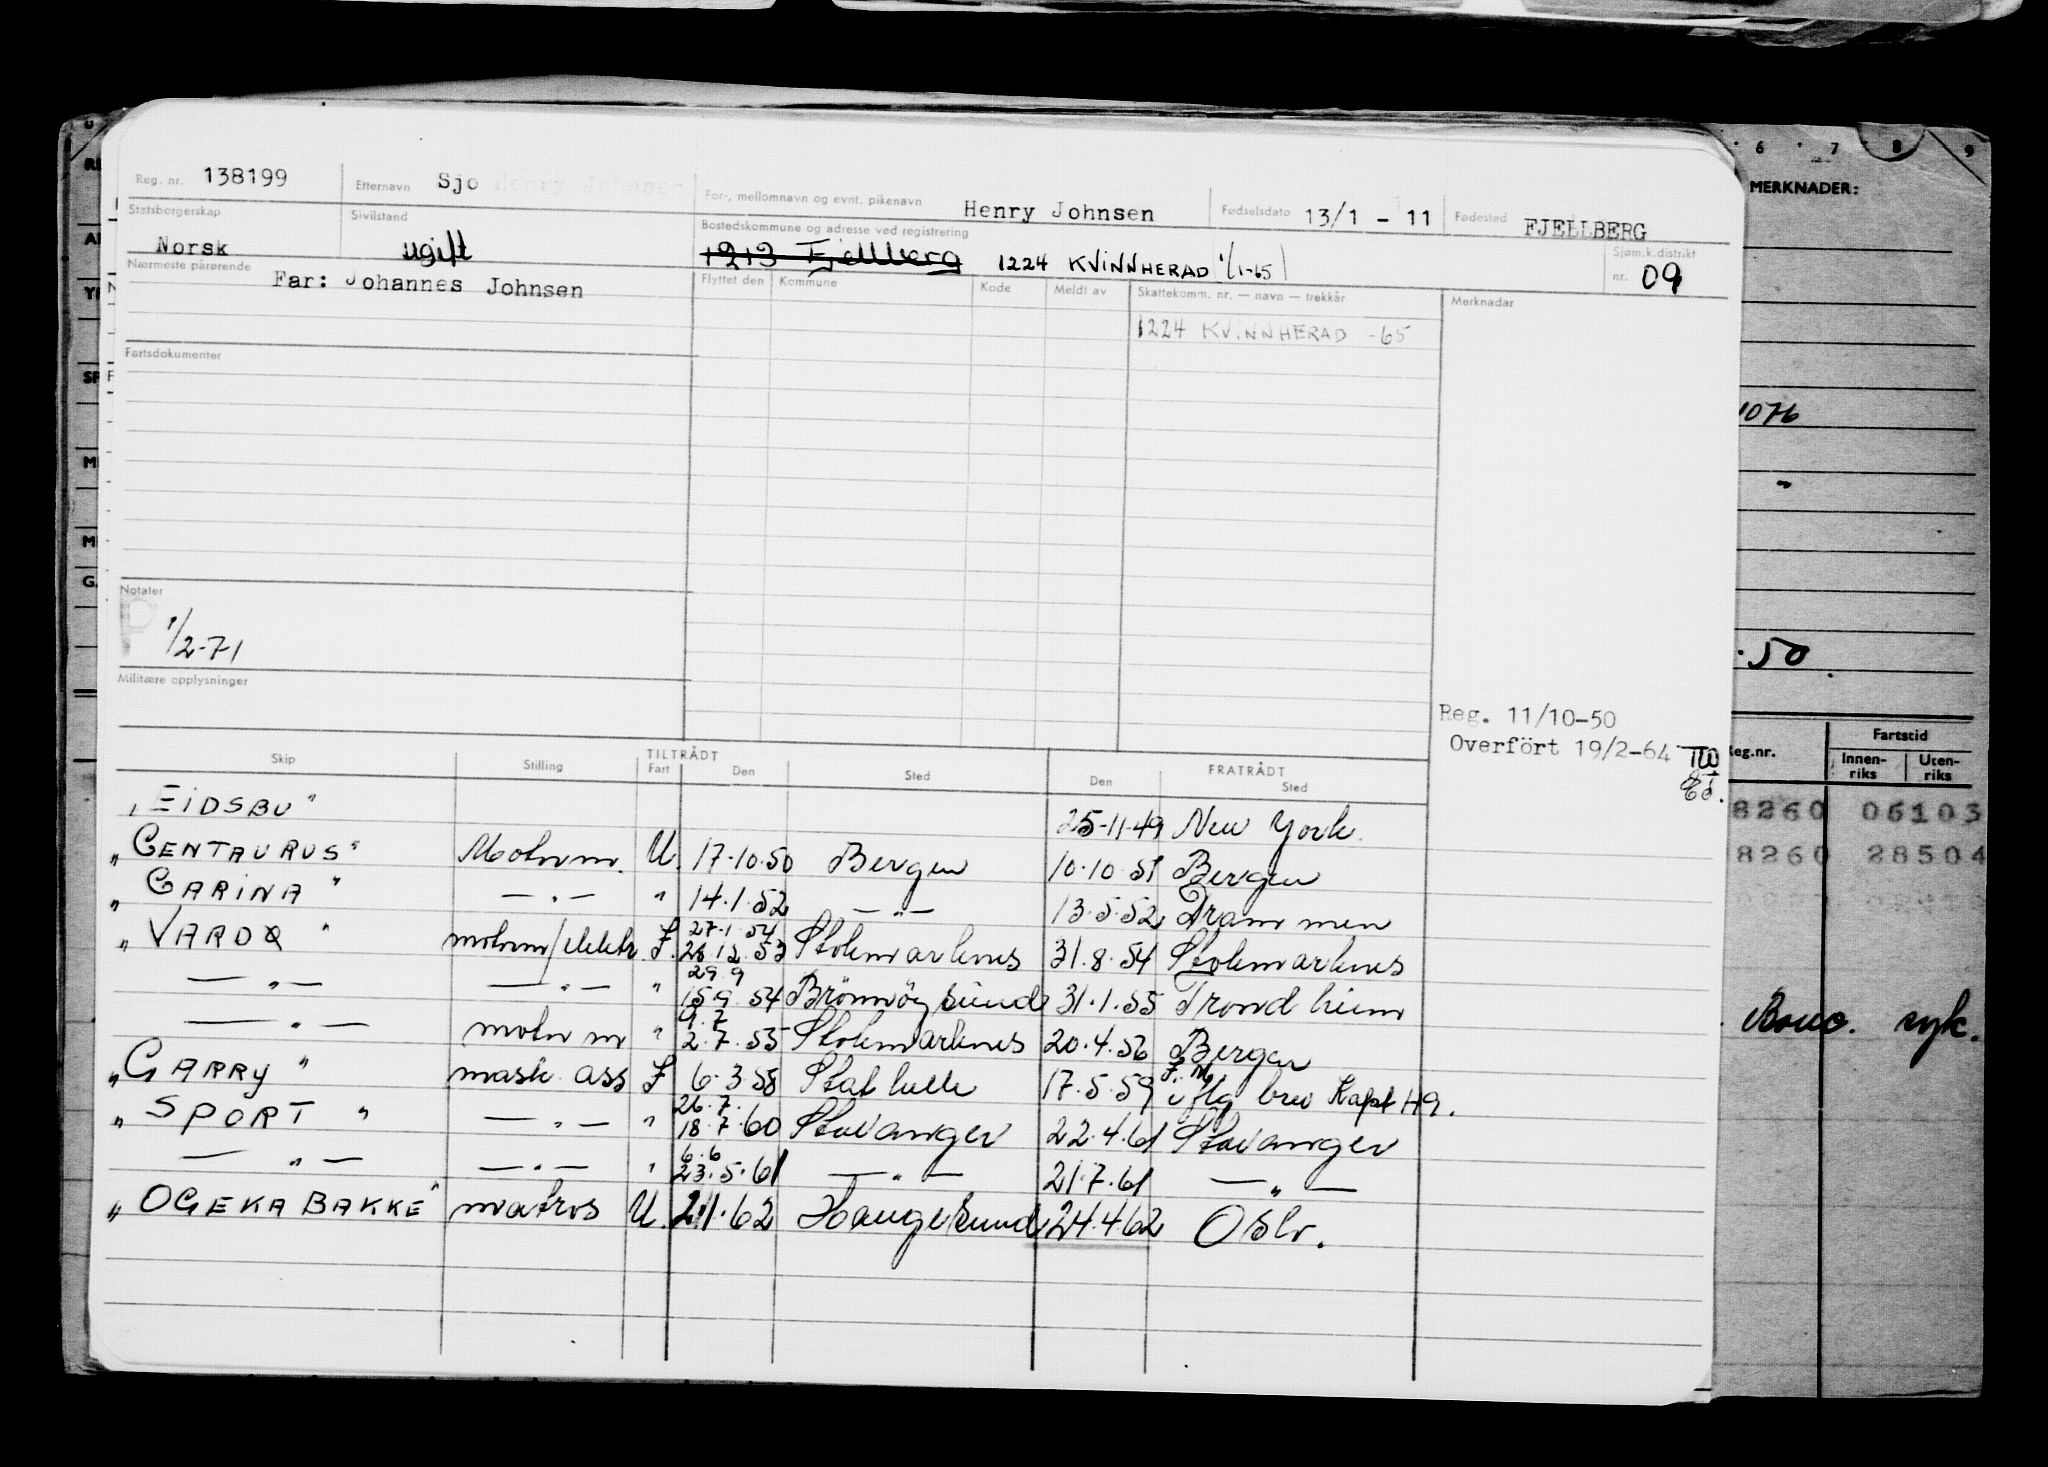 Reg. nr. 138199 Etternavn Sjo Henry Johnsen For-, mellomnavn og evnt. pikenavn Henry Johnsen Fødselsdato 13/1 - 11 Fødested FJELLBERG
Statsborgerskap Norsk Sivilstand ugift Bostedskommune og adresse ved registrering 1213 Fjellberg 1224 KVINNHERAD 1/1-65 Sjøm.k.distrikt nr. 09
Nærmeste pårørende Far: Johannes Johnsen
Flyttet den Kommune Kode Meldt av Skattekomm. nr. — navn — trekkår Merknader
1224 KVINNHERAD -65
Fartsdokumenter
Notater
P 1/2-71
Militære opplysninger
Reg. 11/10-50
Overfört 19/2-64
Skip Stilling TILTRÅDT Fart Den Sted FRATRÅDT Den Sted
"EIDSBU" 25-11-49 New York.
"CENTAURUS" Motorm. U. 17.10.50 Bergen 10.10.51 Bergen
"CARINA" — " — " 14.1.52 — " — 13.5.52 Drammen
27.1.54
"VARDØ" motorm/elektr. I. 28.12.53 Stokmarknes 31.8.54 Stokmarknes
29.9
— " — — " — " 15.9.54 Brönnöysund 31.1.55 Trondheim
9.7
— " — motorm " 2.7.55 Stokmarknes 20.4.56 Bergen
"GARRY" mask. ass I 6.3.58 Stathelle 17.5.59 iflg brev Kapt H9.
26.7.
"SPORT" — " — " 18.7.60 Stavanger 22.4.61 Stavanger
6.6
— " — — " — " 23.5.61 — " — 21.7.61 — " —
"OGEKA BAKKE" matros U. 2.1.62 Haugesund 24.4.62 Oslo.
6 7 8 9
MERKNADER:
1076
.50
Reg.nr. Fartstid
Innen-riks Uten-riks
8260 06103
8260 28504
syk.